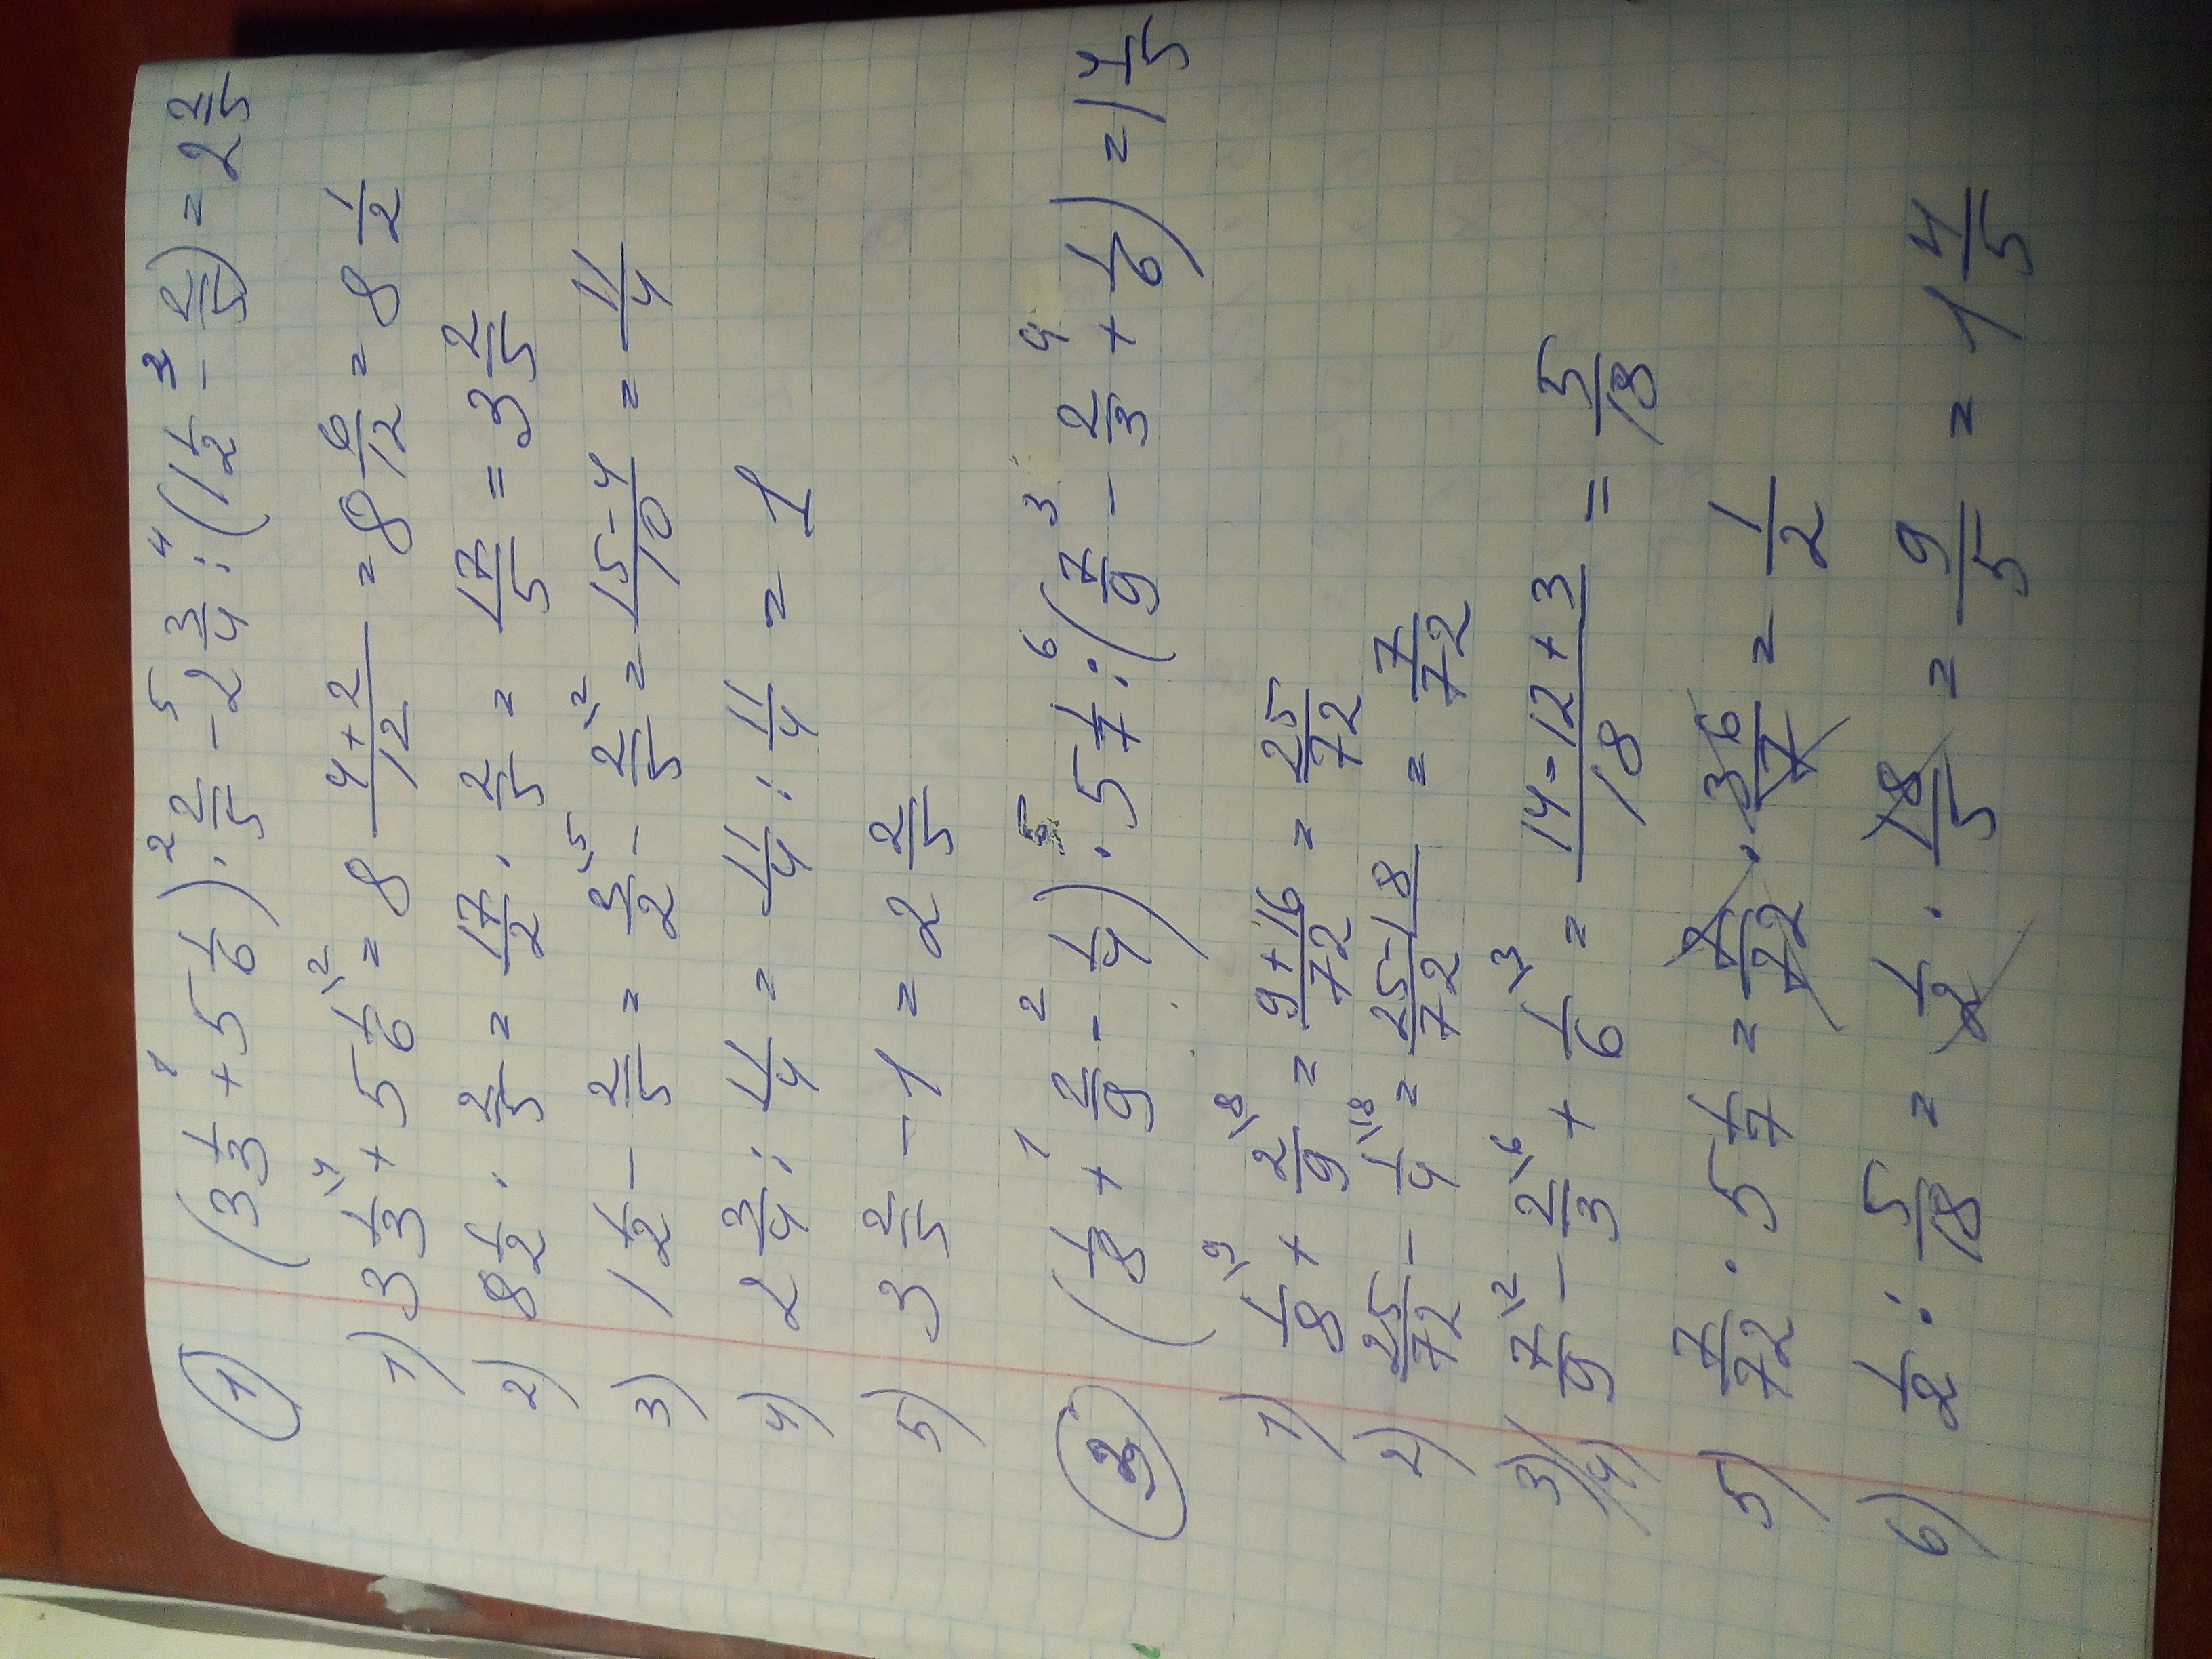 ① (3 1/3 + 5 1/6) · 2/5 - 2 3/4 : (1 1/2 - 2/5) = 2 2/5
1) 3 1/3 + 5 1/6 = 8 (4+2)/12 = 8 6/12 = 8 1/2
2) 8 1/2 · 2/5 = 17/2 · 2/5 = 17/5 = 3 2/5
3) 1 1/2 - 2/5 = 3/2 - 2/5 = (15-4)/10 = 11/4
4) 2 3/4 : 11/4 = 11/4 : 11/4 = 1
5) 3 2/5 - 1 = 2 2/5
② (1/8 + 2/9 - 1/4) · 5 1/7 : (7/9 - 2/3 + 1/6) = 1 4/5
1) 1/8 + 2/9 = (9+16)/72 = 25/72
2) 25/72 - 1/4 = (25-18)/72 = 7/72
3)/4) 7/9 - 2/3 + 1/6 = (14-12+3)/18 = 5/18
5) 7/72 · 5 1/7 = 7/72 · 36/7 = 1/2
6) 1/2 : 5/18 = 1/2 · 18/5 = 9/5 = 1 4/5